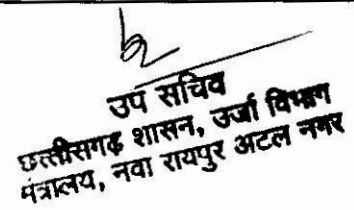 उप सचिव
छत्तीसगढ़ शासन, उर्जा विभाग
मंत्रालय, नवा रायपुर अटल नगर